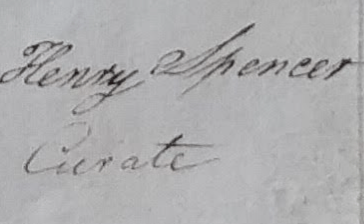 Henry Spencer
Curate